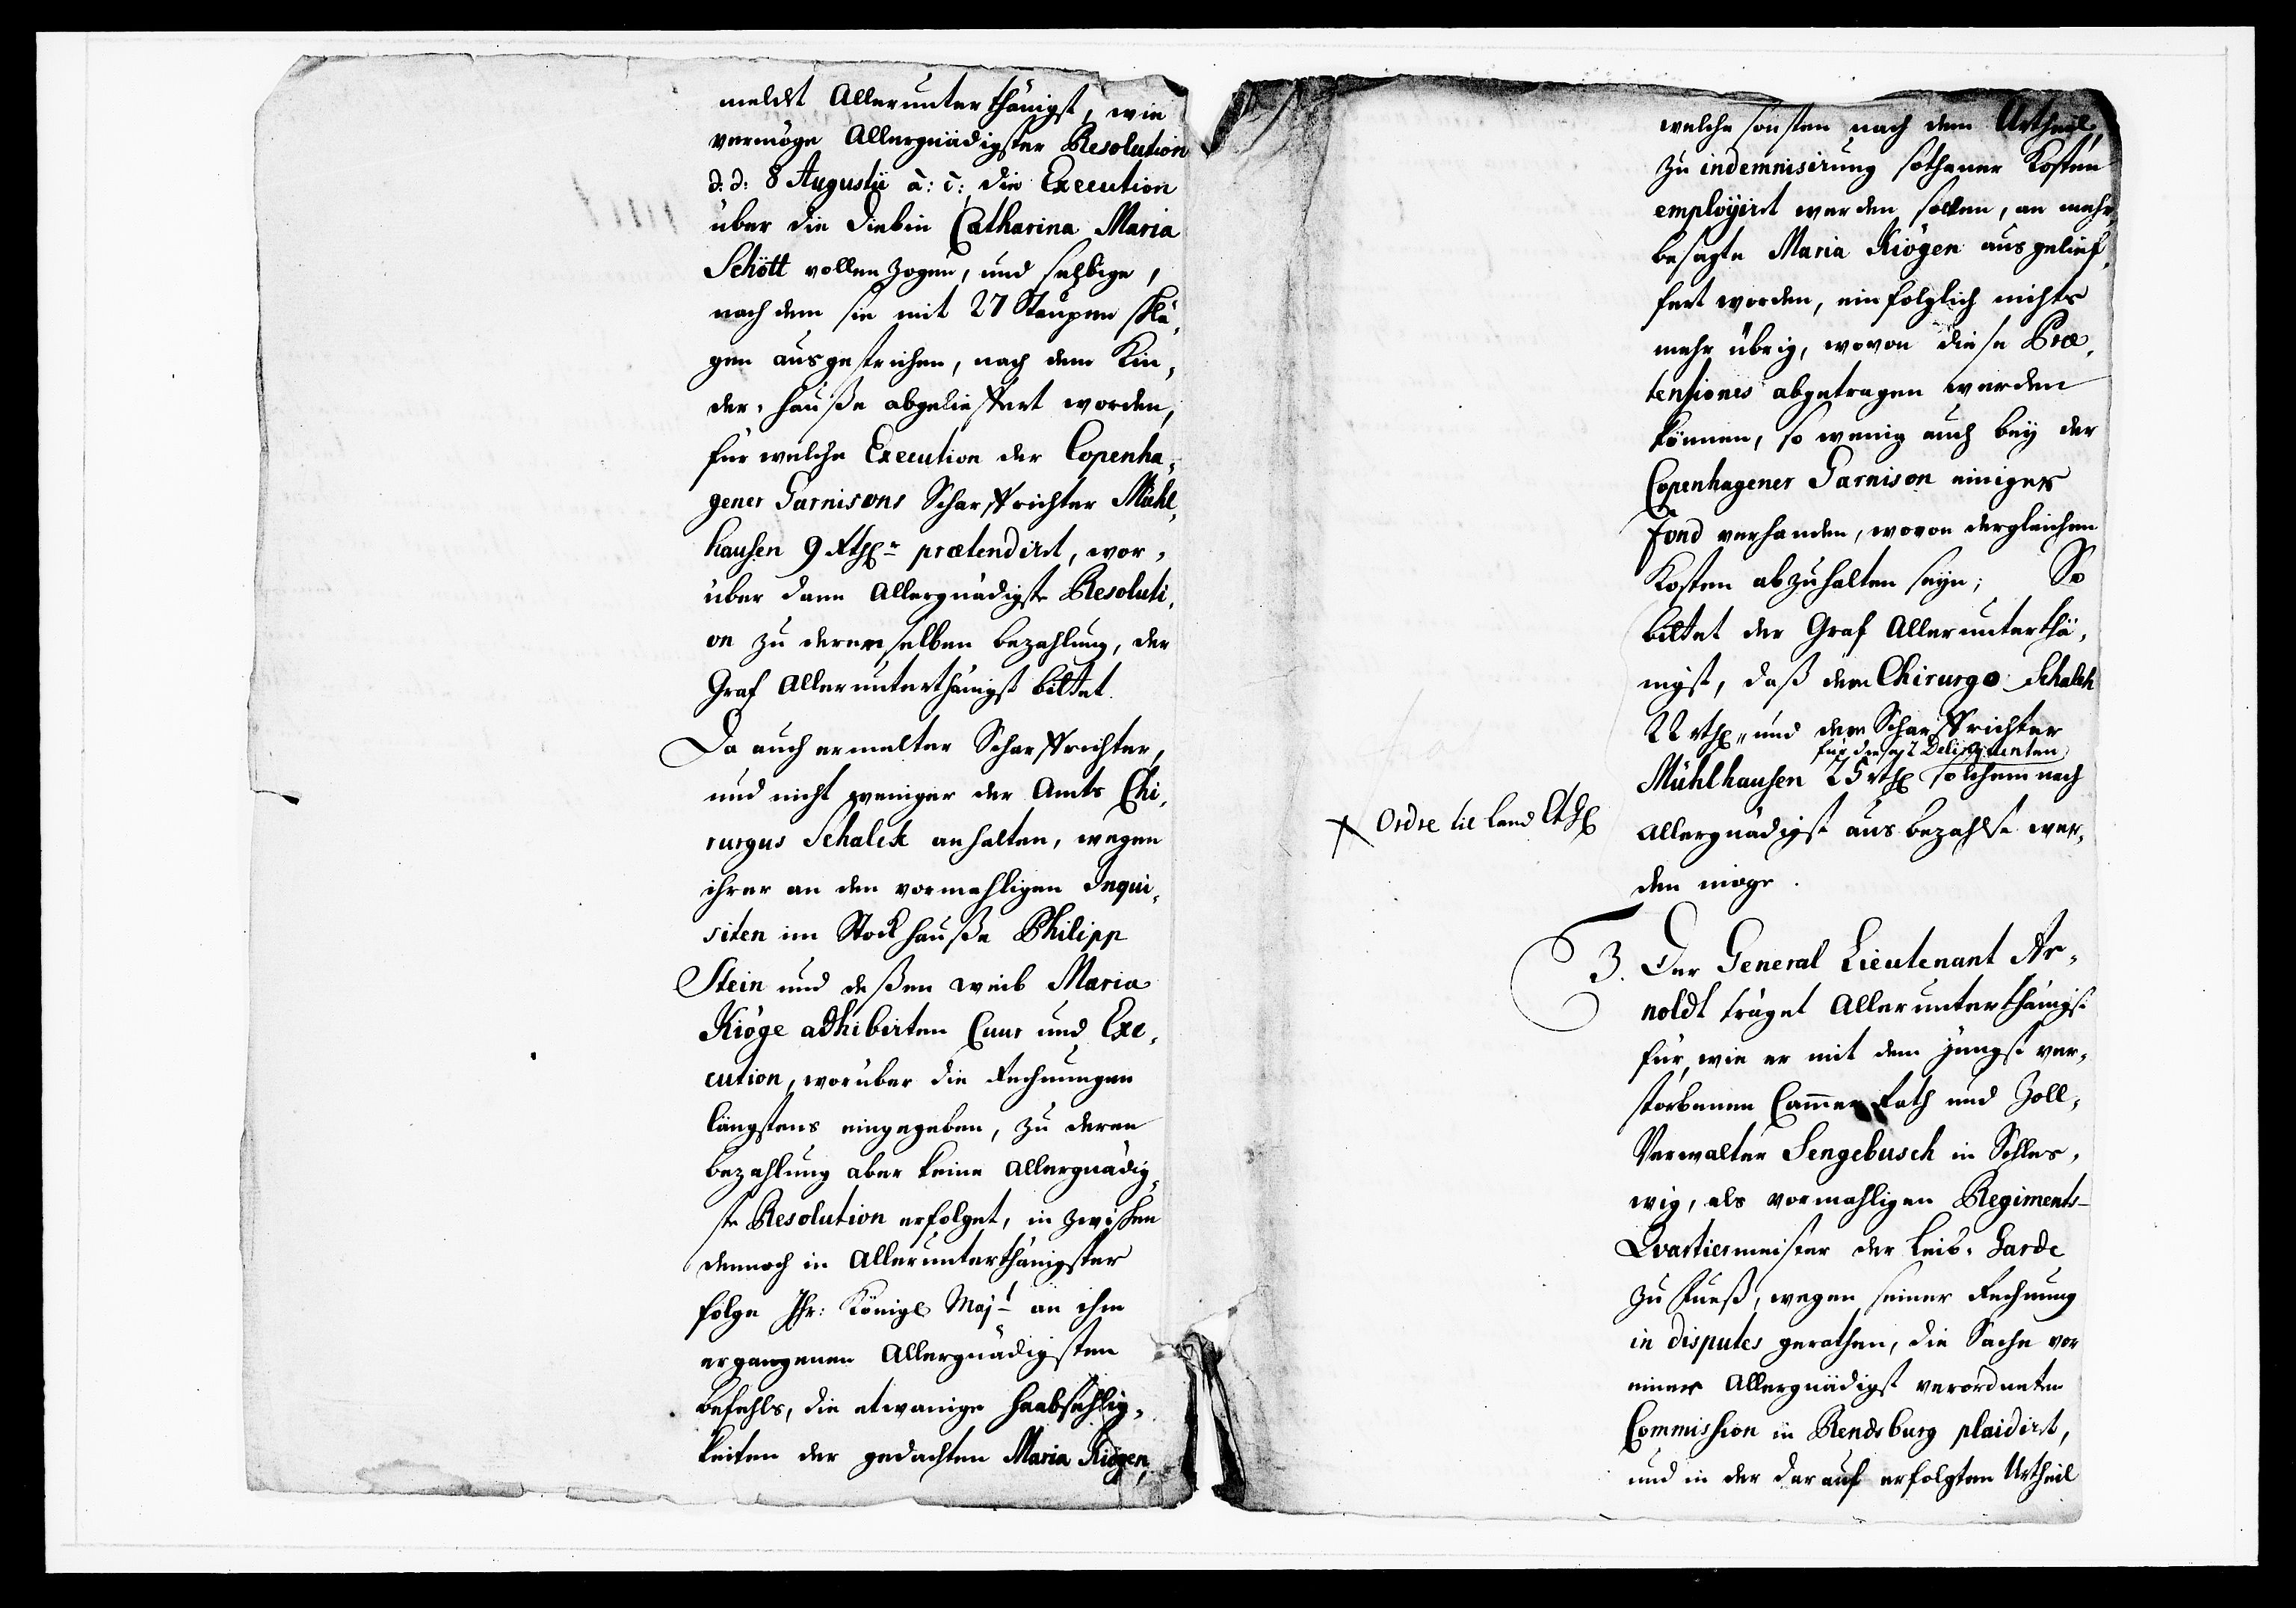 meldt Allerunterthänigst, wie
vermöge Allergnädigster Resolution
d: d: 8 Augusti a: c: die Execution
über die Diebin Catharina Maria
Schött vollenzogen, und selbige,
nach dem sie mit 27 Staupen schlä,
gen ausgestrichen, nach dem Kin,
der, Hause abgelieffert worden,
für welche Execution der Copenha,
gener Garnisons Scharffrichter Mühl,
hausen 9 Rthr prætendirt, wor,
über dann Allergnädigste Resoluti,
on zu derenselben bezahlung, der
Graf Allerunterthänigst bittet.
Da auch ermelter Scharffrichter,
und nicht weniger der Amts Chi,
rurgus Schalck anhalten, wegen
ihrer an den vormahligen Inqui,
siten im Stockhauße Philipp
Stein und deßen weib Maria
Kiöge adhibirten Cuur und Exe,
cution, worüber die Rechnungen
längstens eingegeben, zu deren
bezahlung aber keine Allergnädig,
ste Resolution erfolget, in zwischen
dennoch in Allerunterthänigster
folge Ihr: Königl Maj:t an ihm
ergangenen Allergnädigsten
befehls, die etwanige Haabsehlig,
keiten der gedachten Maria Kiögen,
welche sonsten nach dem Urtheil,
zu indemnisirung sothaner Kosten
employirt werden sollen, an mehr,
besagte Maria Kiögen ausgelief,
fert worden, einfolglich nichts
mehr übrig, wovon diese Præ,
tensiones abgetragen werden
können, so wenig auch bey der
Copenhagener Garnison einiger
Fond verhanden, wovon dergleichen
Kosten abzuhalten seyn; So
bittet der Graf Allerunterthä,
nigst, daß dem Chirurgo Schalck
22 rthr, und dem Scharffrichter
für die Delinquenten
Mühlhausen 25 rthr solchem nach
Allergnädigst aus bezahlt wer,
den möge.
X Ordre til Land Eth
3. Der General Lieutenant Ar,
noldt träget Allerunterthänigst
für, wie er mit dem jüngst ver,
storbenen Cammer Rath und Zoll,
Verwalter Sengebusch in Schles,
wig, als vormahligen Regiments-
Qvartiermeister der Leib, Garde
zu Fueß, wegen seiner Rechnung
in disputes gerathen, die Sache vor
einer Allergnädigst verordneten
Commission in Rendsburg plaidirt,
und in der darauf erfolgten Urtheil